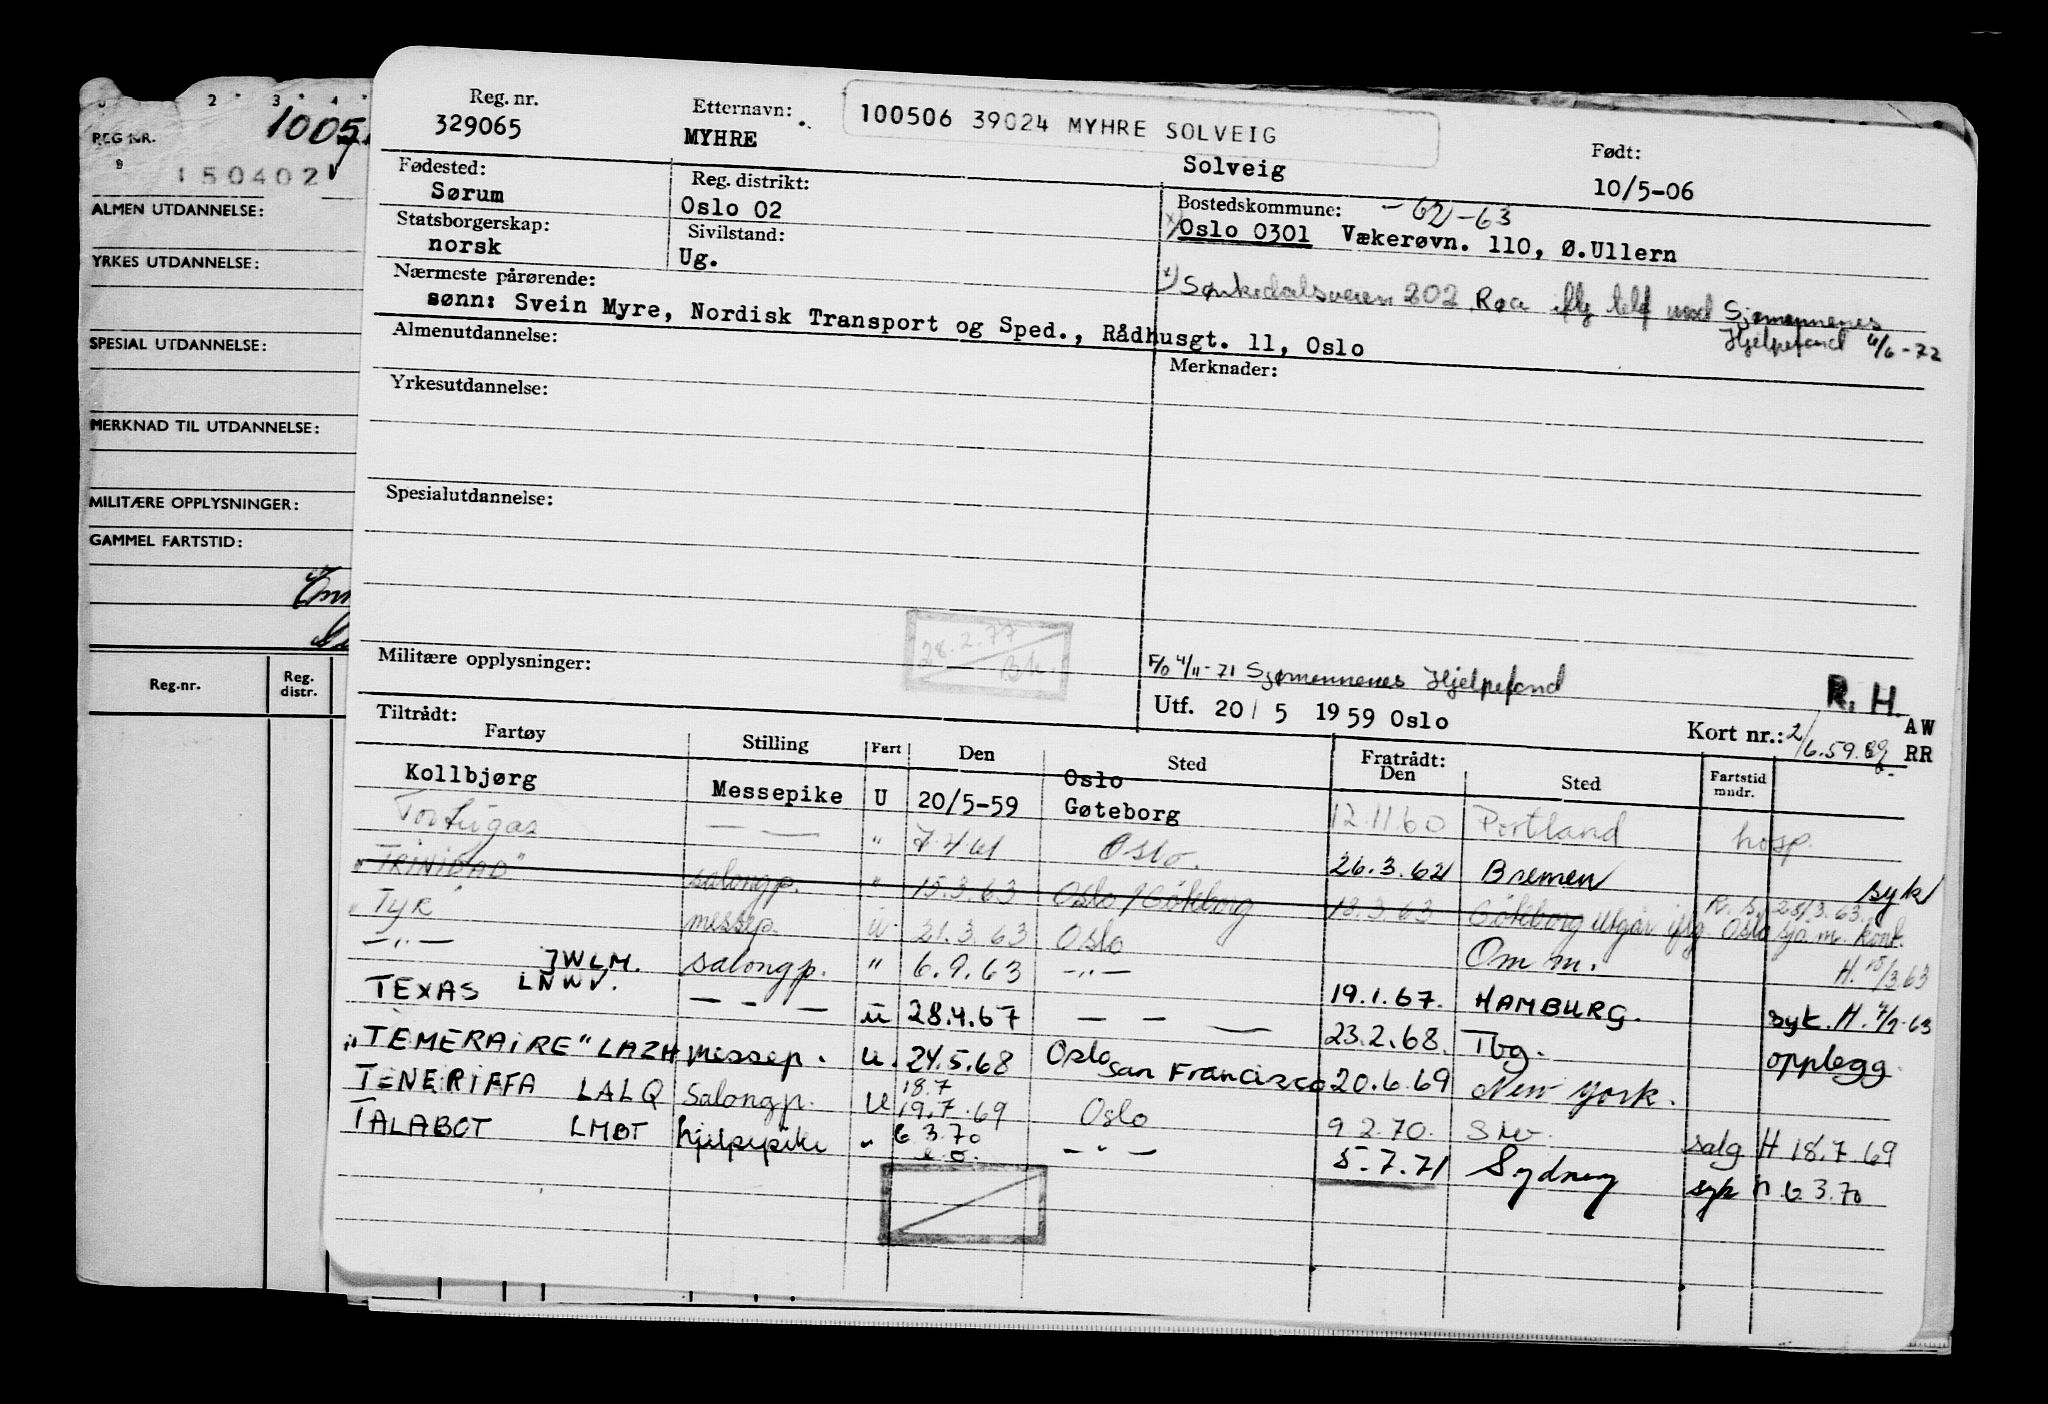 2 3 4
REG NR.
1005
150402
ALMEN UTDANNELSE:
YRKES UTDANNELSE:
SPESIAL UTDANNELSE:
MERKNAD TIL UTDANNELSE:
MILITÆRE OPPLYSNINGER:
GAMMEL FARTSTID:
Reg.nr. Reg. distr.
Reg. nr. 329065
Etternavn: MYHRE
100506 39024 MYHRE SOLVEIG
Solveig
Født: 10/5-06
Fødested: Sørum
Reg. distrikt: Oslo 02
Bostedskommune: -62-63
Oslo 0301 Vækerøvn. 110, Ø.Ullern
Statsborgerskap: norsk
Sivilstand: Ug.
Sørkedalsveien 202 Røa iflg telf med Sjømennenes
Hjelpefond 4/6-72
Nærmeste pårørende:
sønn: Svein Myre, Nordisk Transport og Sped., Rådhusgt. 11, Oslo
Almenutdannelse:
Merknader:
Yrkesutdannelse:
Spesialutdannelse:
28.2.77
Bh.
Militære opplysninger:
F/O 4/11-71 Sjømennenes Hjelpefond
R. H.
Utf. 20/ 5 1959 Oslo
Kort nr.: 2/6.59. AW RR
Tiltrådt:
Fartøy Stilling Fart Den Sted Fratrådt: Den Sted Fartstid mndr.
Kollbjørg Messepike U 20/5-59 Oslo Gøteborg 12.11.60 Portland hosp.
Tortugas — — " 7.4.61 Oslo. 26.3.62 Bremen syk
"TRINIDAD" salongp. " 15.3.63 Oslo/Göteborg 18.3.63 Göteborg Utgår iflg. Oslo sjø.m. kont.
"TYR messep. u 21.3.63 Oslo Om m. H. 15/3.63
— " — salongp. " 6.9.63 — " — 19.1.67. HAMBURG. syk. H. 4/9-63
TEXAS JWLM. LNWV. — — — u 28.4.67 — — — 23.2.68. Tbg. opplegg
"TEMERAIRE" LAZH messep. u. 24.5.68 Oslo San Francisco 20.6.69 New York.
TENERIFFA LALQ Salongp. u 18.7 19.7.69 Oslo 9.2.70. Slv. salg H 18.7.69
TALABOT LMBT hjelpepike " 6 3.70 — " — 5.7.71 Sydney syk H 6 3.70